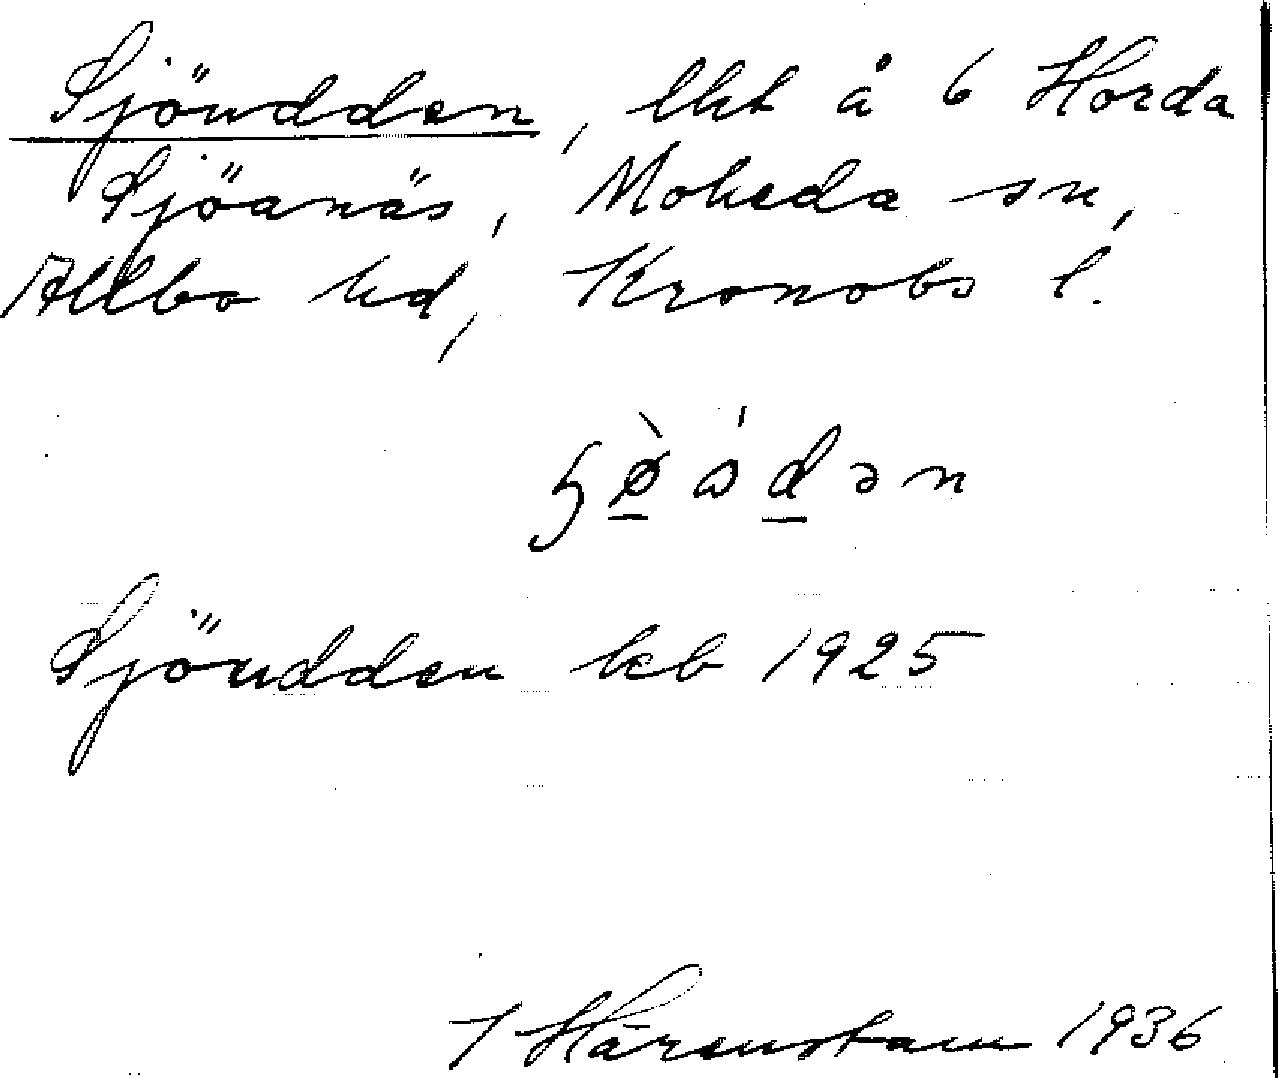 Sjöudden, lht å 6 Horda
Sjöanäs, Moheda sn,
Allbo hd, Kronobs l.
Sjöudden kcb 1925
I Härenstam 1936